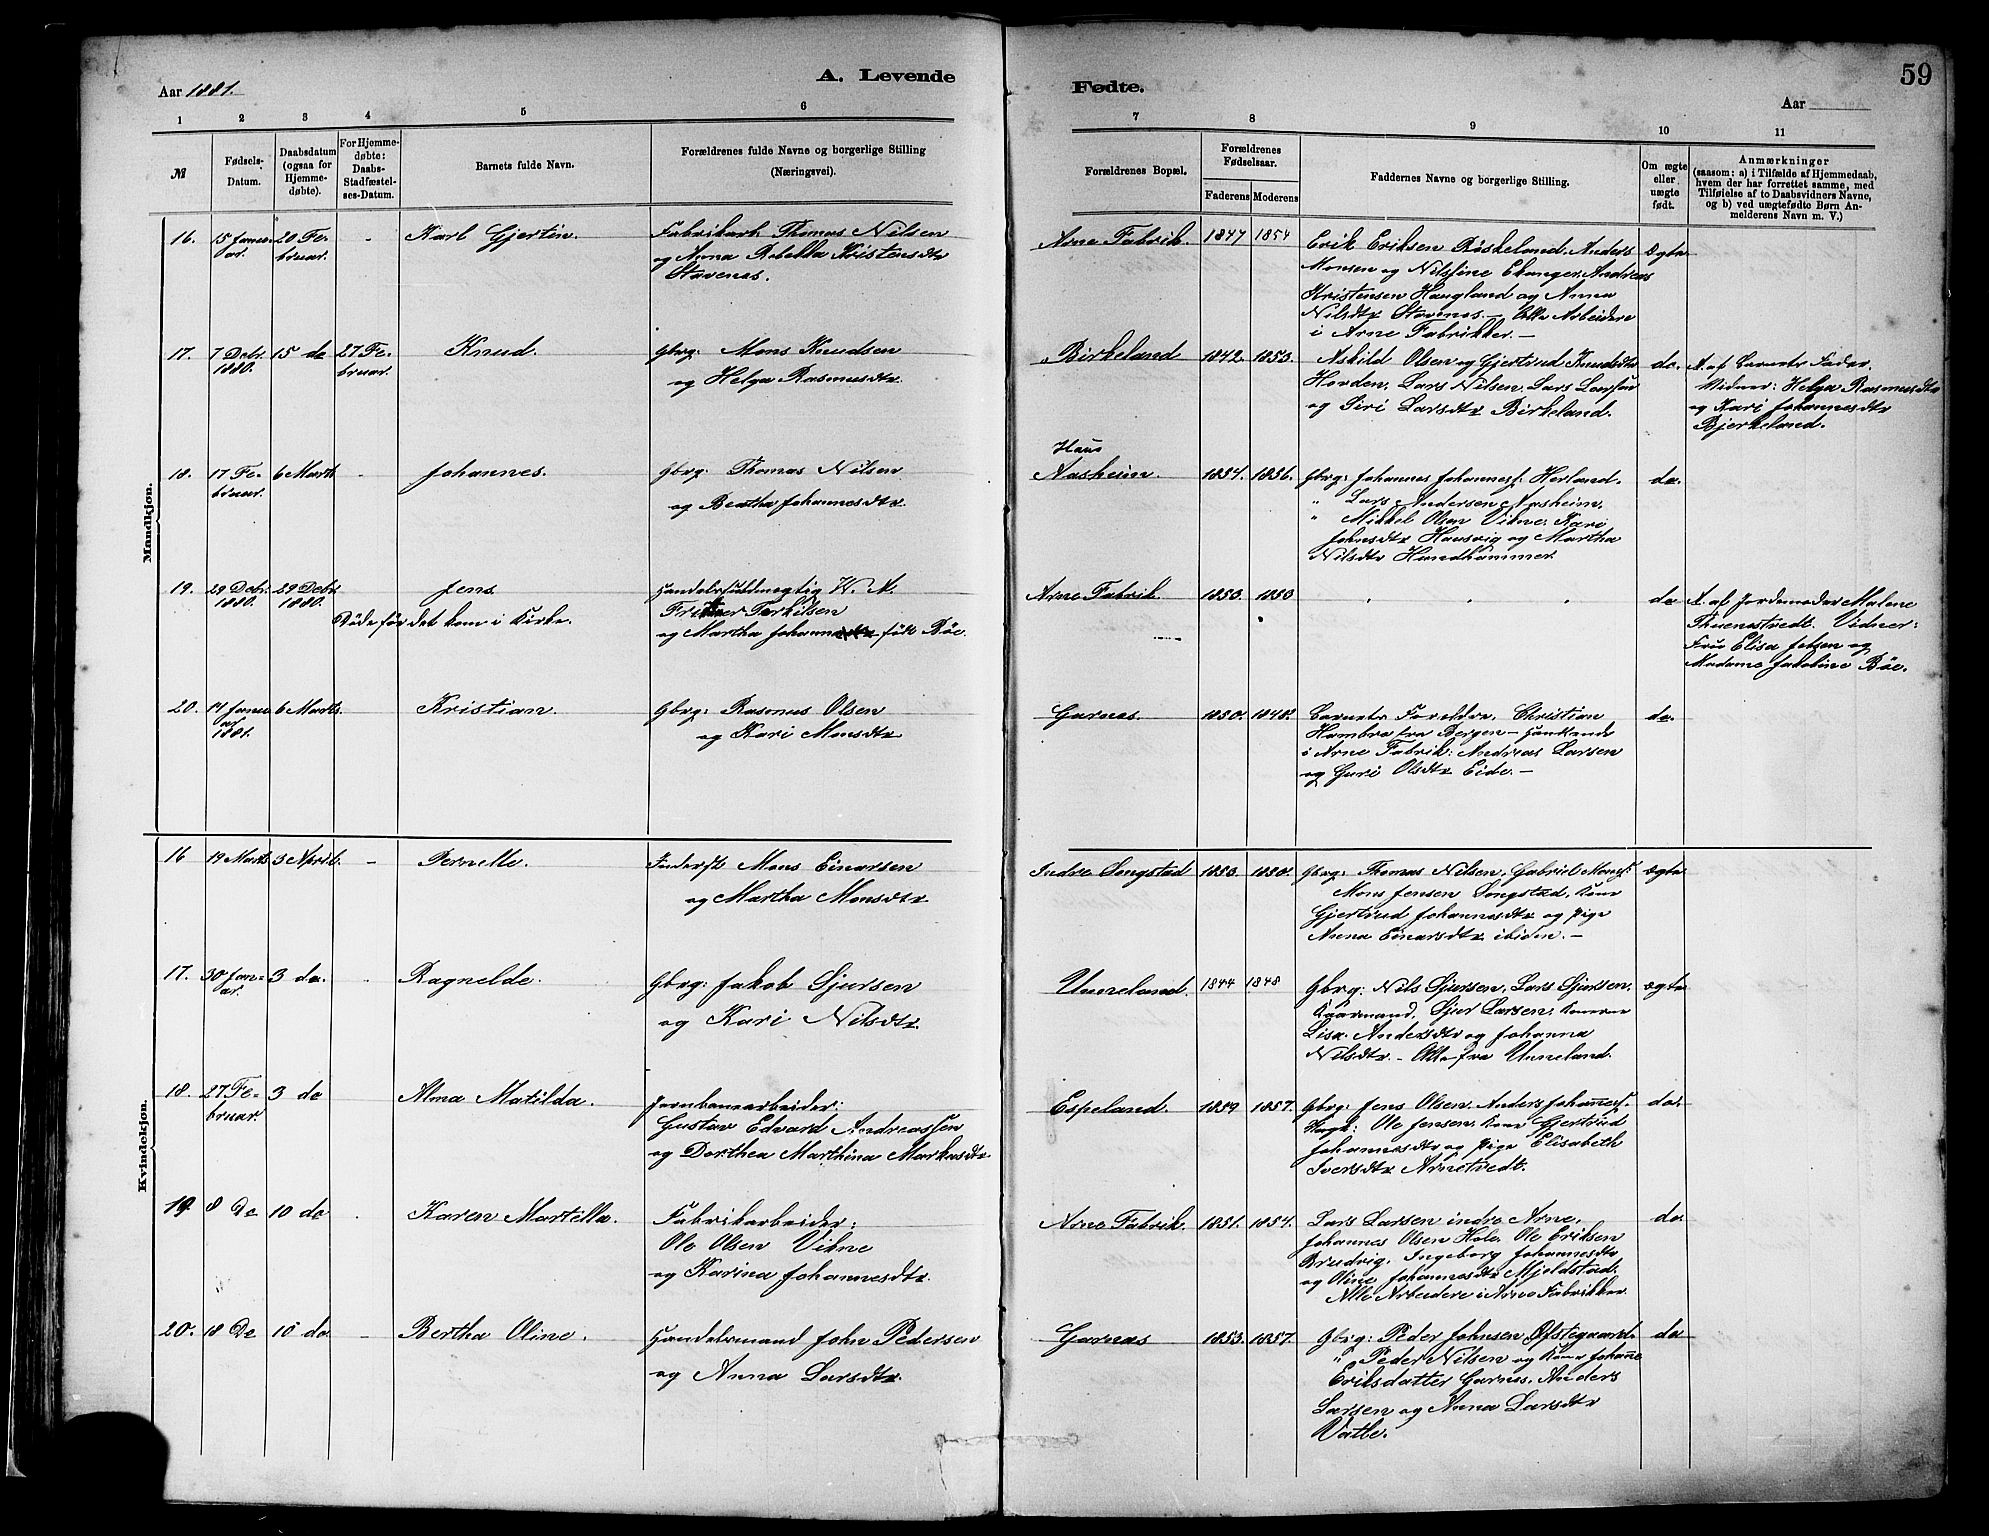 Aar 1881.
A. Levende
Fødte.
59
Aar
1
2
3
4
5
6
7
8
9
10
11
№
Fødsels-
Datum.
Daabsdatum
(ogsaa for
Hjemme-
døbte).
For Hjemme-
døbte:
Daabs-
Stadfæstel-
ses-Datum.
Barnets fulde Navn.
Forældrenes fulde Navne og borgerlige Stilling
(Næringsvei).
Forældrenes Bopæl.
Forældrenes
Fødselsaar.
Faderens
Moderens
Faddernes Navne og borgerlige Stilling.
Om ægte
eller
uægte
født.
Anmærkninger
(saasom: a) i Tilfælde af Hjemmedaab,
hvem der har forrettet samme, med
Tilføielse af to Daabsvidners Navne,
og b) ved uægtefødte Børn An-
melderens Navn m. V.)
Mandkjøn.
16.
15 Janu-
ar.
20 Fe-
bruar.
-
Karl Gjertin.
Fabrikarb. Thomas Nilsen
og Anna Rebekka Kristensdtr
Stavenes.
Arne Fabrik.
1847
1854
Erik Eriksen Røskeland, Anders
Monsen og Nilsine Ekanger, Andreas
Kristensen Haugland og Anna
Nilsdtr Stavenes. – Alle Arbeidere
i Arne Fabrikker. –
Ægte
17.
7 Debr.
1880.
15 do
27 Fe-
bruar.
Knud.
Gbrg: Mons Knudsen
og Helga Rasmusdtr.
Birkeland
1842.
1853.
Askild Olsen og Gjertrud Knudsdtr
Horden, Lars Nilsen, Lars Larsen
og Siri Larsdtr Birkeland.
do.
A. af Barnets Fader.
Vidner: Helga Rasmusdtr
og Kari Johannesdtr
Bjerkeland.
18.
17 Fe-
bruar.
6 Marts
-
Johannes.
Gbrg: Thomas Nilsen
og Bertha Johannesdtr
Haus
Aasheim.
1854.
1856.
Gbrg: Johannes Johanness: Herland.
" Lars Andersen Aasheim,
" Mikkel Olsen Vikne, Kari
Johnsdtr Hausvig og Martha
Nilsdtr Handhammer.
do.
19.
29 Debr.
1880.
29 Debr.
1880.
Døde før det kom i Kirke.
Jens
Handelsfuldmegtig W. A.
Tarkilsen
og Martha født Bøe.
Arne Fabrik.
1853.
1853
do
A. af Jordemoder Malene
Thuenestvedt. Vidner:
Frue Elisa Jebsen og
Madame Jakobine Bøe.
20.
14 Janu-
ar
1881.
6 Marts.
Kristian.
Gbrg: Rasmus Olsen
og Kari Monsdtr
Garnes.
1850.
1848.
Barnets Foreldre, Christian
Hambro fra Bergen –
i Arne Fabrik: Andreas Larsen
og Guri Olsdtr Eide. –
do.
Kvindekjøn.
16
19 Marts
3 April.
-
Pernille.
Inderst Mons Einarsen
og Martha Monsdtr
Indre Songstad
1853.
1850.
Gbrg: Thomas Nilsen, Gabriel Monss:
Mons Jensen Songstad, Kone
Gjertrud Johannesdtr og Pige
Anna Einarsdtr ibiden. –
ægte
17.
30 Jan-
ar.
3 do.
-
Ragnelde.
Gbrg: Jakob Sjursen
og Kari Nilsdtr.
Unneland.
1844
1848
Gbrg: Nils Sjursen, Lars Sjursen,
Kaarmand, Sjur Larsen, Konerne
Lisa Andersdtr og Johanna
Nilsdtr. – Alle fra Unneland.
ægte
18.
27 Fe-
bruar.
3 do
-
Alma Matilda.
Jernbanearbeider:
Gustav Edvard Andreassen
og Dorthea Marthina Markusdtr
Espeland.
1859
1857.
Gbrg: Jens Olsen, Anders Johaness:
Ole Jensen, Kone Gjertrud
Johannesdtr og Pige Elisabeth
Iversdtr Arnetvedt.
do.
19
8 Do
10 do
Karen Martella.
Fabrikarbeider:
Ole Olsen Vikne
og Karina Johannesdtr.
Arne Fabrik.
1851.
1854.
Lars Larsen indre Arne,
Johannes Olsen Hole, Ole Eriksen
Brudvig, Ingeborg Johannesdtr
og Oline Johannesdtr Mjeldstad.
Alle Arbeidere i Arne Fabrikker.
do.
20.
18 Do
10 do.
-
Bertha Oline.
Handelsmand John Pedersen
og Anna Larsdtr.
Garnes
1853.
1857.
Gbrg: Peder Johnsen Øfstegaard,
" Peder Nilsen og Kone Johanne
Eriksdatter Garnes, Anders
Larsen og Anna Larsdtr
Vatle.
do